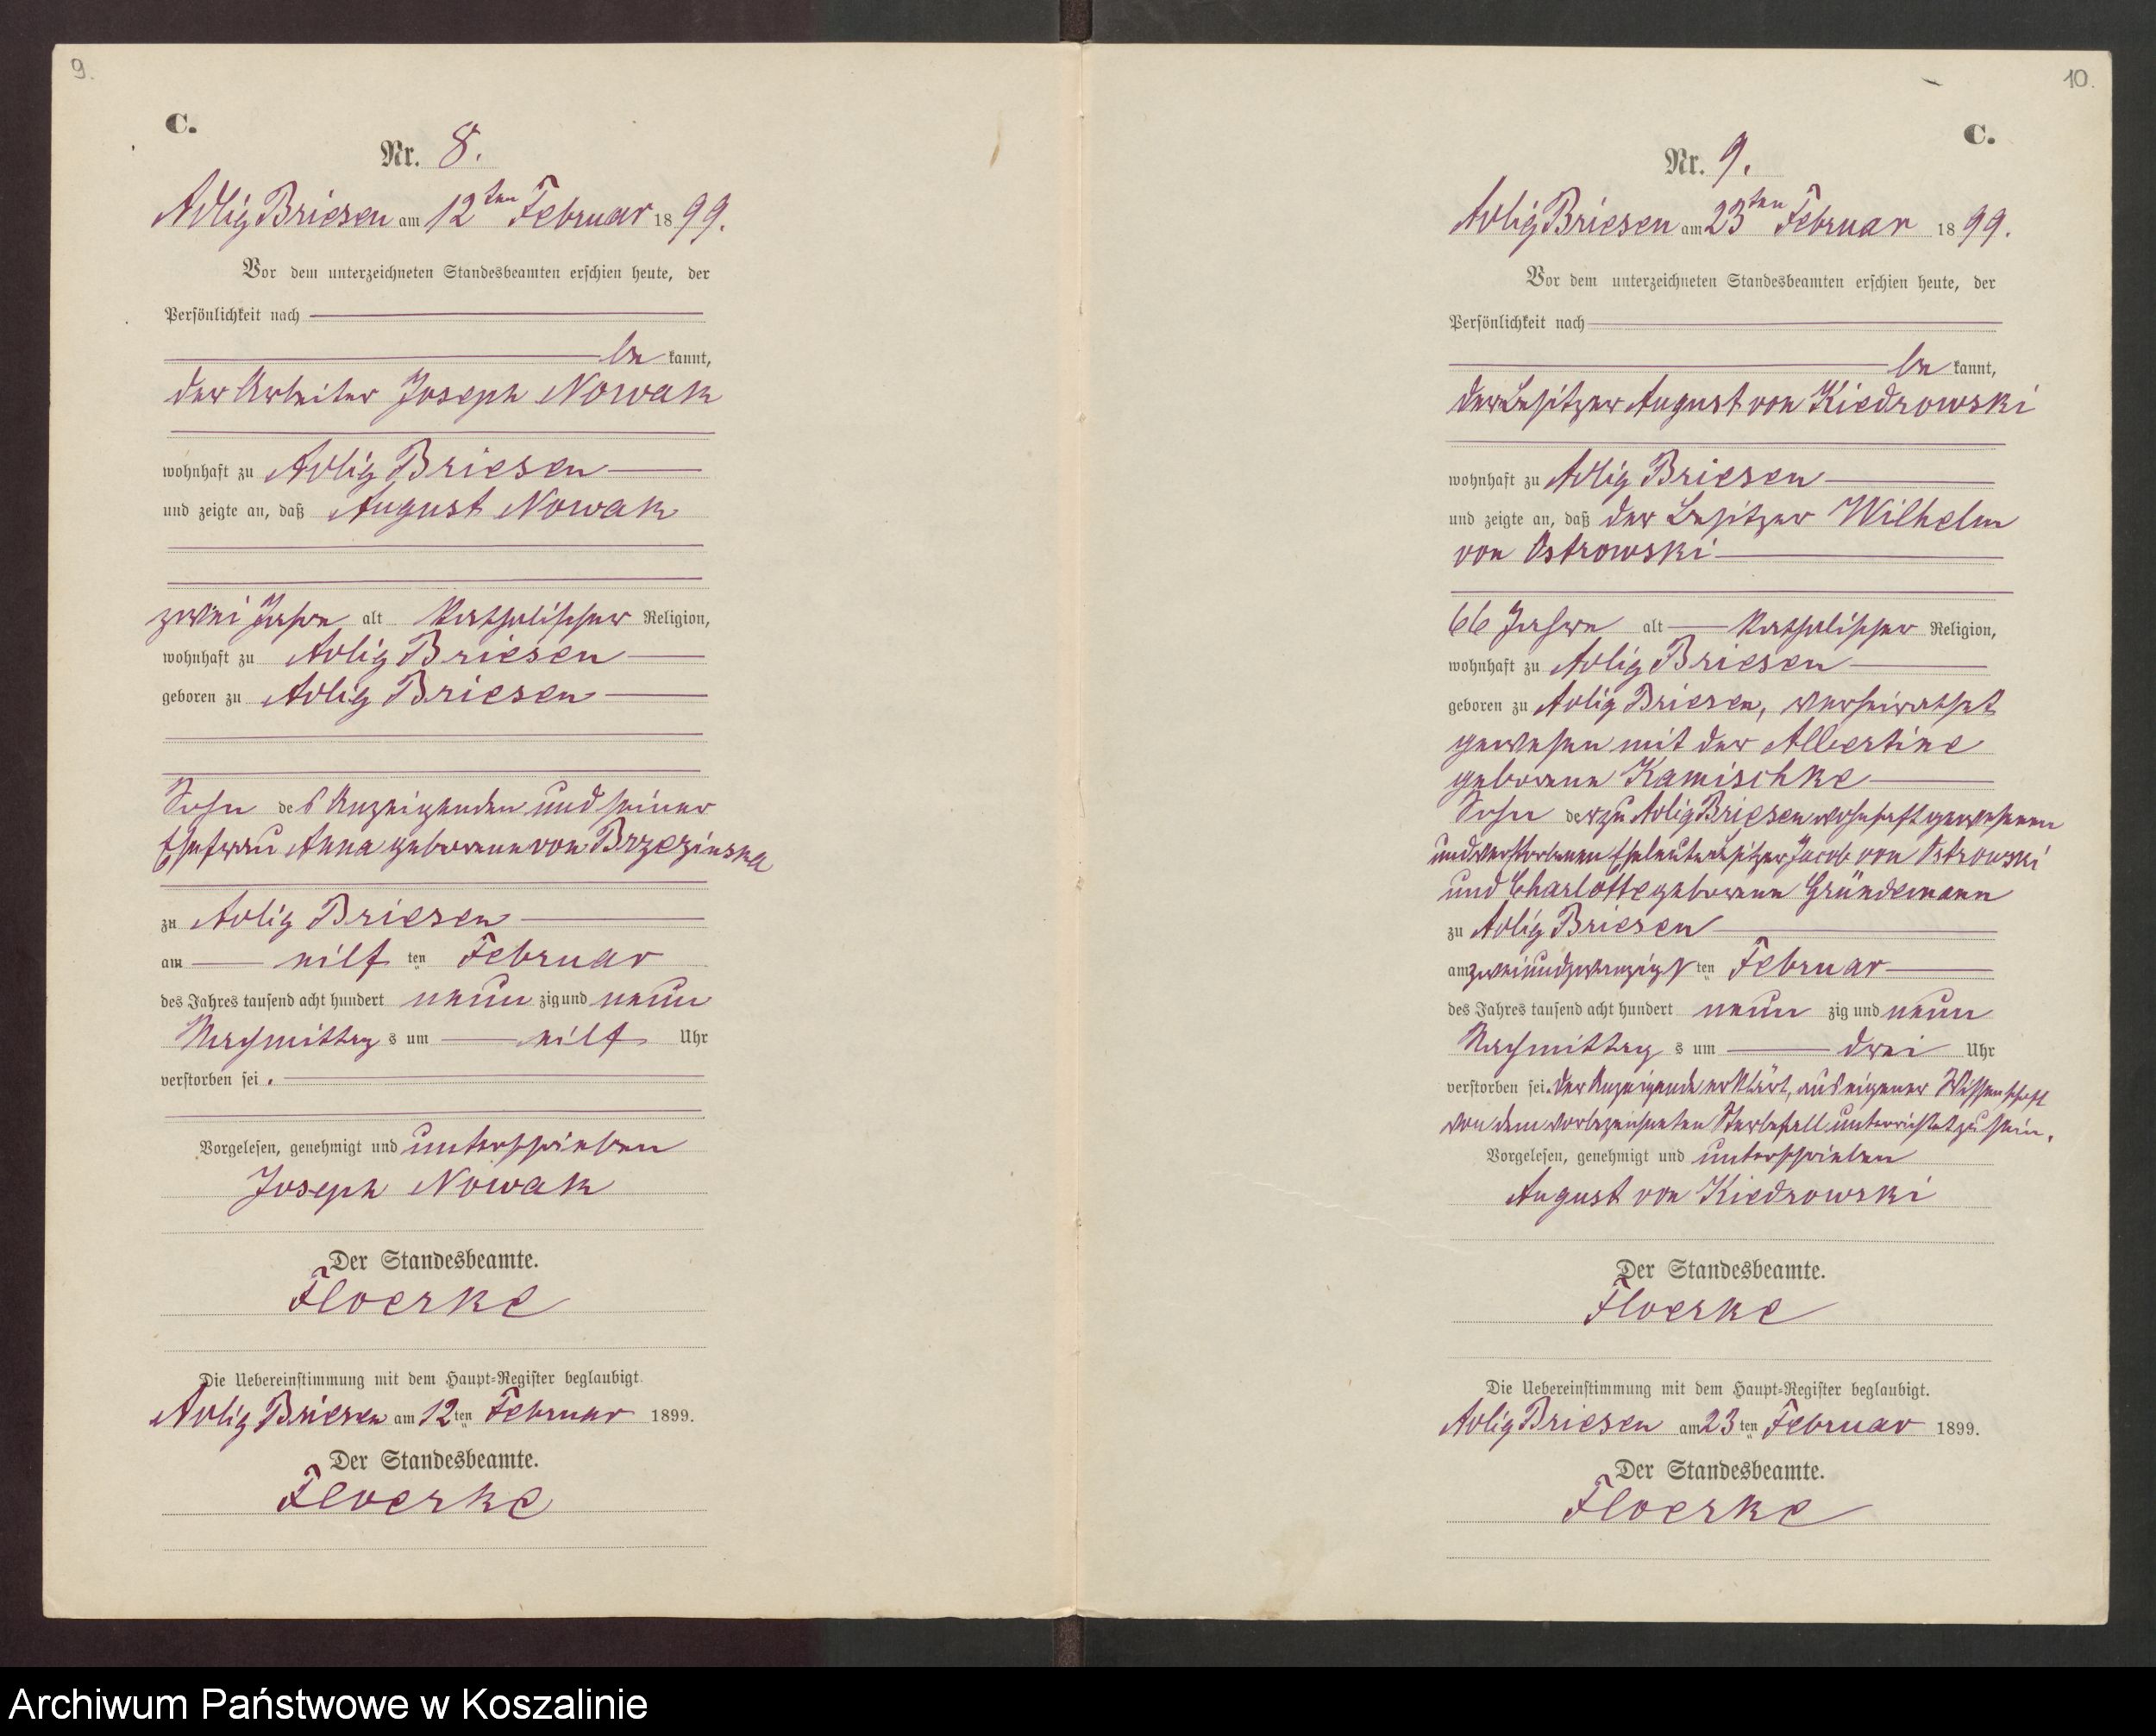 9.
C.
Nr. 8.
Adlig Briesen am 12ten Februar 1899.
Vor dem unterzeichneten Standesbeamten erschien heute, der
Persönlichkeit nach
be kannt,
der Arbeiter Joseph Nowak
wohnhaft zu Adlig Briesen
und zeigte an, daß August Nowak
zwei Jahre alt katholischer Religion,
wohnhaft zu Adlig Briesen
geboren zu Adlig Briesen
Sohn des Anzeigenden und seiner
Ehefrau Anna geborene von Brzezinska
zu Adlig Briesen
am elf ten Februar
des Jahres tausend acht hundert neun zig und neun
Nachmittag s um elf Uhr
verstorben sei.
Vorgelesen, genehmigt und unterschrieben
Joseph Nowak
Der Standesbeamte.
Floerke
Die Uebereinstimmung mit dem Haupt-Register beglaubigt.
Adlig Briesen am 12ten Februar 1899.
Der Standesbeamte.
Floerke
10.
C.
Nr. 9.
Adlig Briesen am 23ten Februar 1899.
Vor dem unterzeichneten Standesbeamten erschien heute, der
Persönlichkeit nach
be kannt,
der Besitzer August von Kiedrowski
wohnhaft zu Adlig Briesen
und zeigte an, daß der Besitzer Wilhelm
von Ostrowski
66 Jahre alt katholischer Religion,
wohnhaft zu Adlig Briesen
geboren zu Adlig Briesen, verheirathet
gewesen mit der Albertine
geborene Kamischke
Sohn der zu Adlig Briesen wohnhaft gewesenen
und verstorbenen Eheleute Besitzer Jacob von Ostrowski
und Charlotte geborene Gründemann
zu Adlig Briesen
am zweiundzwanzigsten Februar
des Jahres tausend acht hundert neun zig und neun
Nachmittag s um drei Uhr
verstorben sei. Der Anzeigende erklärt, aus eigener Wissenschaft
von dem vorbezeichneten Sterbefall unterrichtet zu sein.
Vorgelesen, genehmigt und unterschrieben
August von Kiedrowski
Der Standesbeamte.
Floerke
Die Uebereinstimmung mit dem Haupt-Register beglaubigt.
Adlig Briesen am 23ten Februar 1899.
Der Standesbeamte.
Floerke
Archiwum Państwowe w Koszalinie